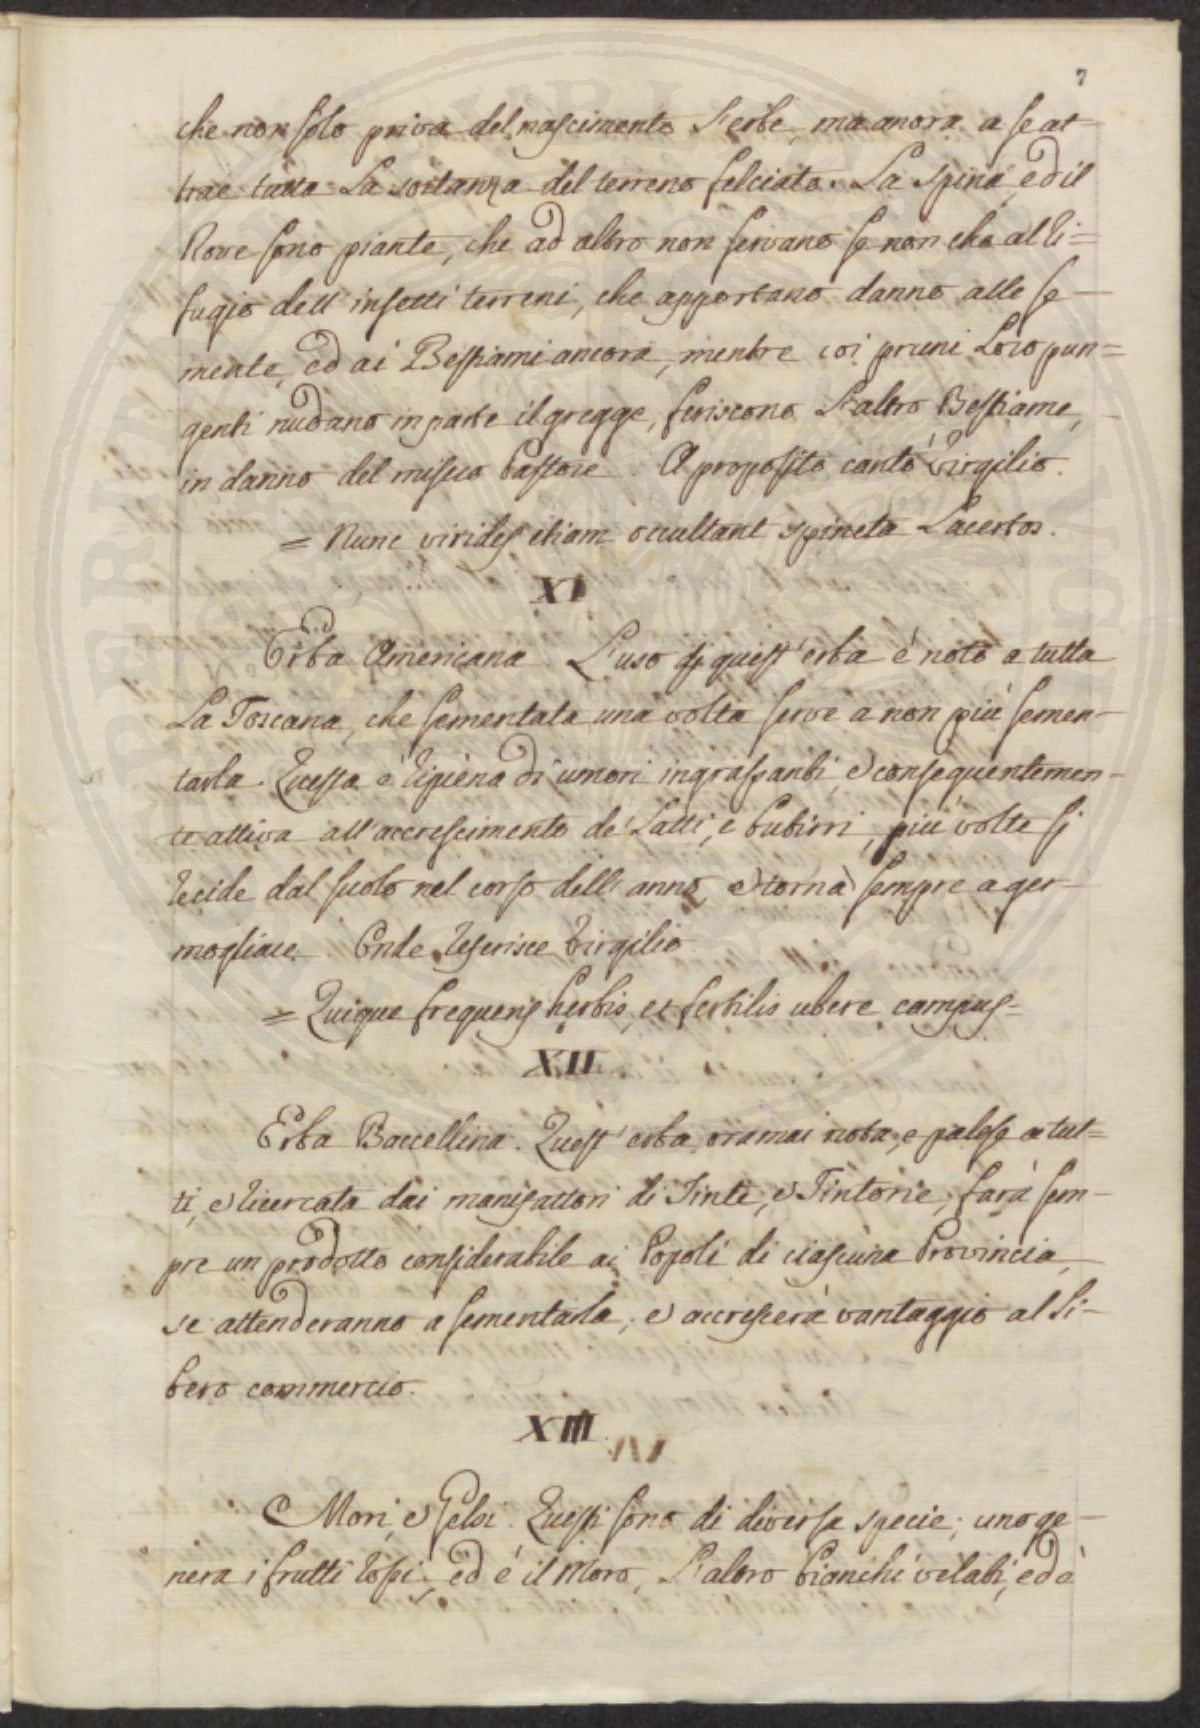 7
che non solo priva del nascimento l'erbe, ma ancora a se at-
trae tutta la sostanza del terreno felciato. La Spina, ed il
Rove sono piante, che ad altro non servano se non che al ri=
fugio dell'insetti terreni, che apportano danno alle se-
mente, ed ai Bestiami ancora, mentre coi pruni loro pun=
genti nudano in parte il gregge, feriscono l'altro Bestiame,
in danno del misero Pastore. A proposito cantò Virgilio.
= Nunc virides etiam occultant spineta Lacertos.
XI
Erba Americana. L'uso di quest'erba é noto a tutta
la Toscana, che sementata una volta serve a non piú semen-
tarla. Ricessa é ripiena di umori ingrassanti, e conseguentemen-
te attiva all'accrescimento de' Latti, e butirri, piú volte si
recide dal suolo nel corso dell'anno, e torna sempre a ger-
mogliare. Onde riferisce Virgilio
= Quique frequens herbis, et fertilis ubere campus=
XII.
Erba Barcellina. Quest'erba oramai nota, e palese a tut=
ti, e ricercata dai manifattori di Tinte, e Tintorie, farà sem-
pre un prodotto considerabile ai Popoli di ciascuna Provincia,
se attenderanno a sementarla, e accrescerà vantaggio al li-
bero commercio.
XIII.
Mori, e Gelsi. Questi sono di diversa specie; uno ge-
nera i frutti rossi, ed é il Moro, l'altro bianchi velati, ed è